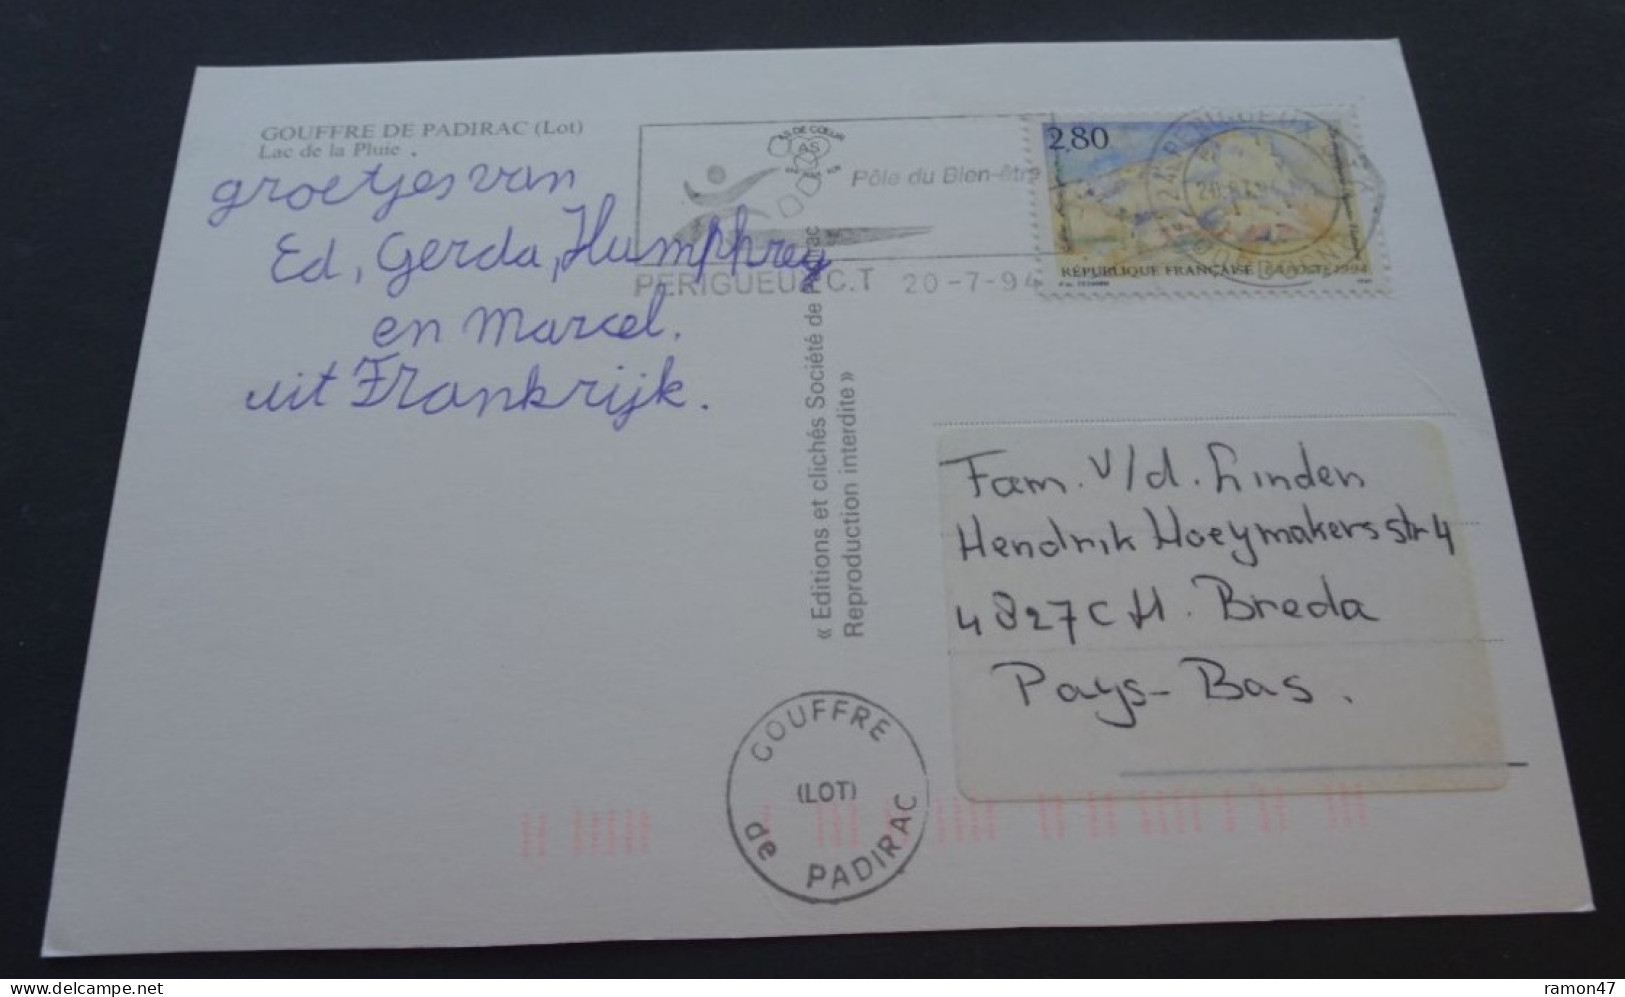 GOUFFRE DE PADIRAC (Lot)
Lac de la Pluie .
groetjes van
Ed, Gerda, Humphrey
en Marcel.
uit Frankrijk.
AS DE CŒUR
AS
Pôle du Bien-être
PERIGUEUX C.T 20-7-94
2,80
RÉPUBLIQUE FRANÇAISE LA POSTE 1994
« Editions et clichés Société de Padirac
Reproduction interdite »
Fam. v/d. Linden
Hendrik Hoeymakersstr 4
4827CH. Breda
Pays-Bas.
GOUFFRE
(LOT)
de PADIRAC
www.delcampe.net
ramon47